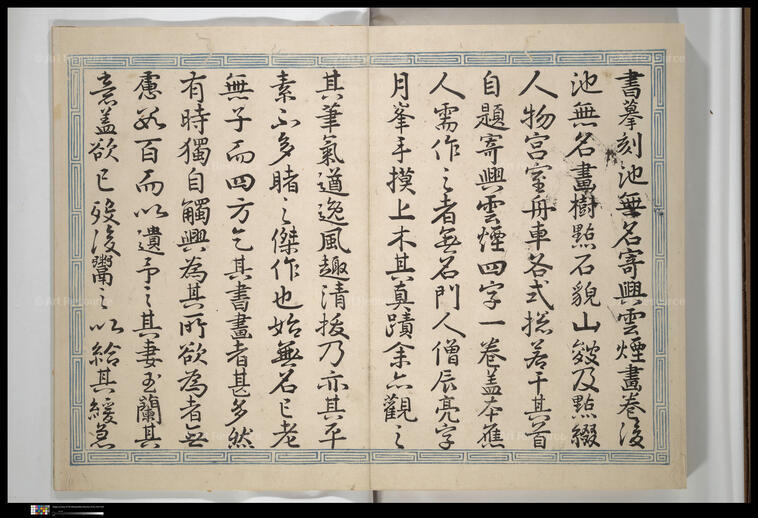 書摹刻池無名寄興雲煙畫卷後
池無名畫樹點石貌山皴及點綴
人物宮室舟車各式捴若干其首
自題寄興雲煙四字一卷盖本應
人需作之者無名門人僧辰亮字
月峯手摸上木其真蹟余亦觀之
其筆氣遒逸風趣清拔乃亦其平
素不多睹之傑作也始無名已老
無子而四方乞其書畫者甚多然
有時獨自觸興為其所欲為者無
慮數百而以遺予之其妻玉蘭其
意盖欲已歿後鬻之以給其緩急
© Art Resource